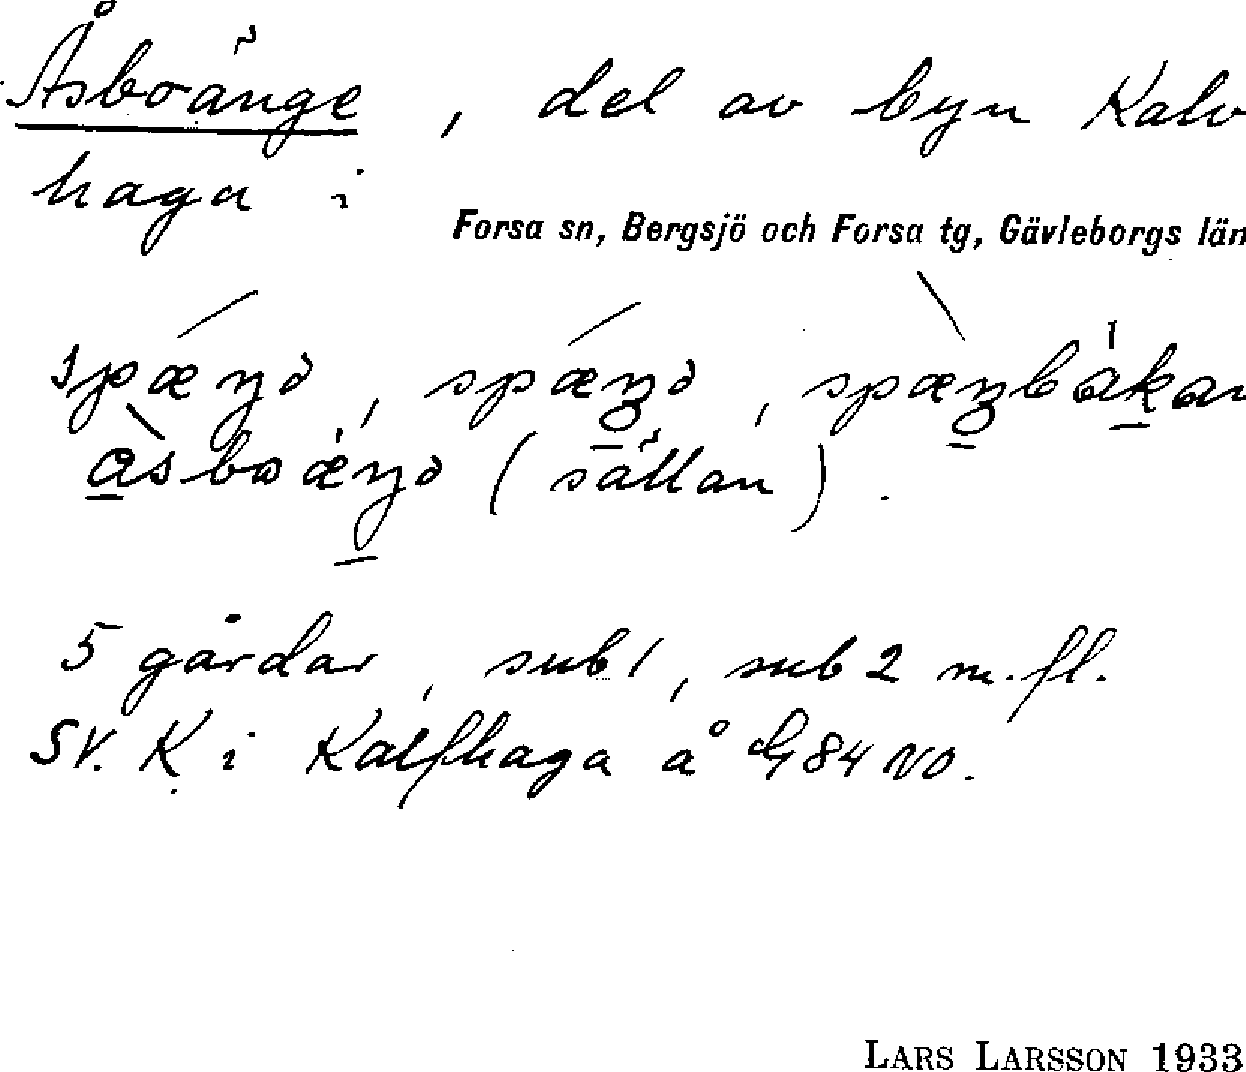 Åsboänge, del av byn Kalv
haga i
Forsa sn, Bergsjö och Forsa tg, Gävleborgs län
(sällan).
5 gårdar, sub 1, sub 2 m.fl.
SV. K i Kalfhaga å G84 NO.
LARS LARSSON 1933